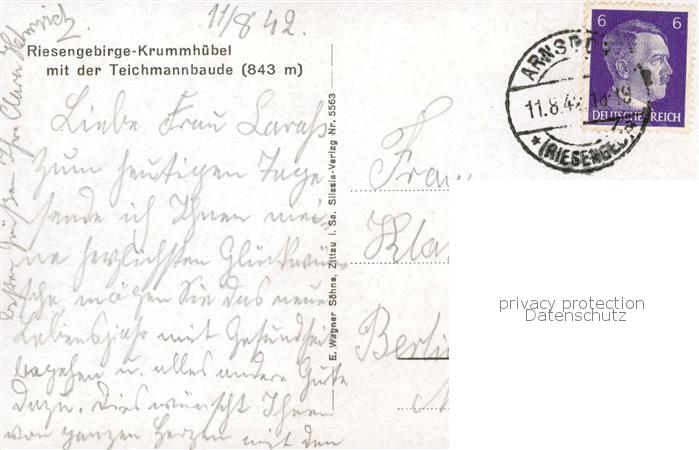 11/8 42.
Riesengebirge-Krummhübel
mit der Teichmannbaude (843 m)
Liebe Frau
Zum heutigen Tage
sende ich Ihnen mei-
ne herzlichsten Glückwün-
sche mögen Sie das neue
Lebensjahr mit Gesundheit
begehen u. alles andere Gute
dazu. Dies wünscht Ihnen
von ganzen Herzen mit den
besten Grüßen Ihre Clara
E. Wagner Söhne, Zittau i. Sa. Silesia-Verlag Nr. 5563
6 6
DEUTSCHES REICH
ARNSDO
11.8.42
(RIESENGEB
Frau
Kla
Berlin
privacy protection
Datenschutz